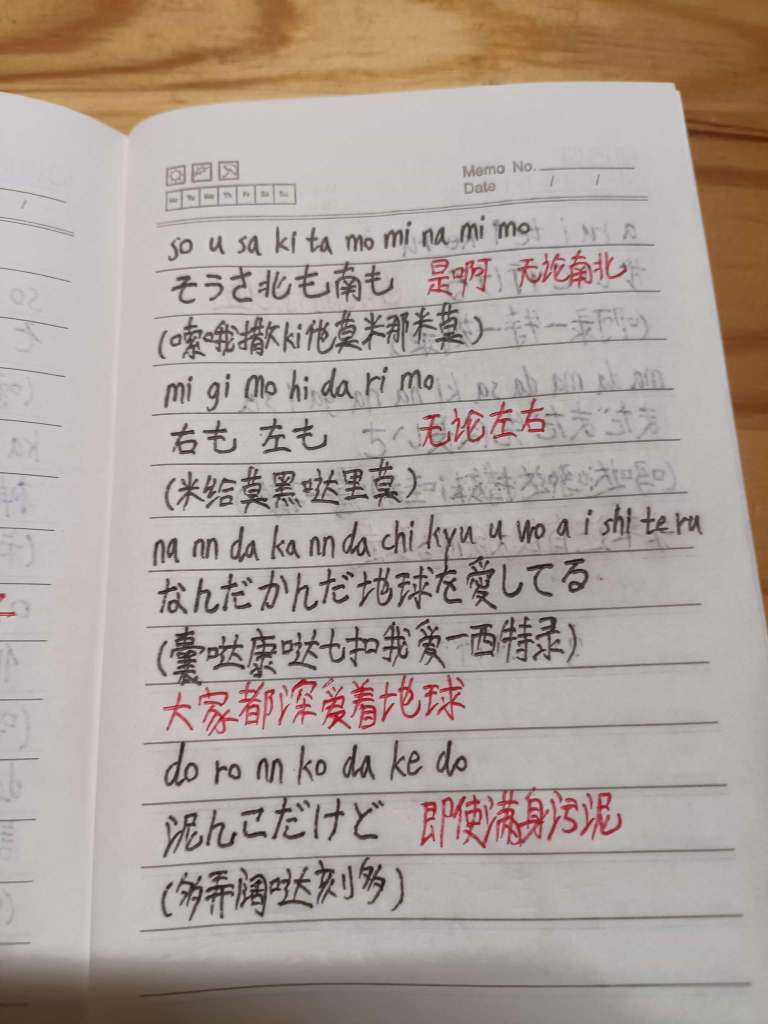 Memo No.
Mo Tu We Th Fr Sa Su
Date / /
so u sa ki ta mo mi na mi mo
そうさ北も南も 是啊 无论南北
(嗦哦撒ki他莫米那米莫)
mi gi mo hi da ri mo
右も 左も 无论左右
(米给莫黑哒里莫)
na nn da ka nn da chi kyu u wo a i shi te ru
なんだかんだ地球を愛してる
(囊哒康哒七扣我爱一西特录)
大家都深爱着地球
do ro nn ko da ke do
泥んこだけど 即使满身污泥
(多弄阔哒刻多)